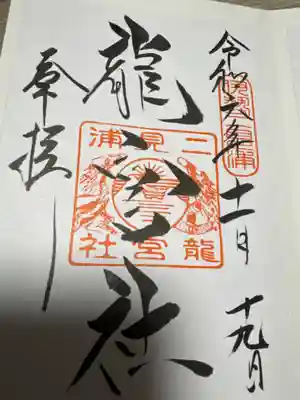 令和六年十一月十九日
龍宮社
二見浦
龍宮社
奉拝